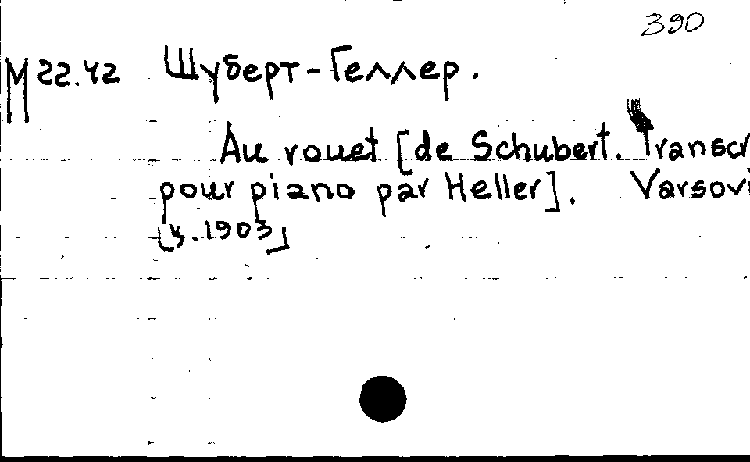 390
M 22.42 Шуберт-Геллер.
Au rouet [de Schubert. Transcr
pour piano par Heller]. Varsovi
[ц.1903]